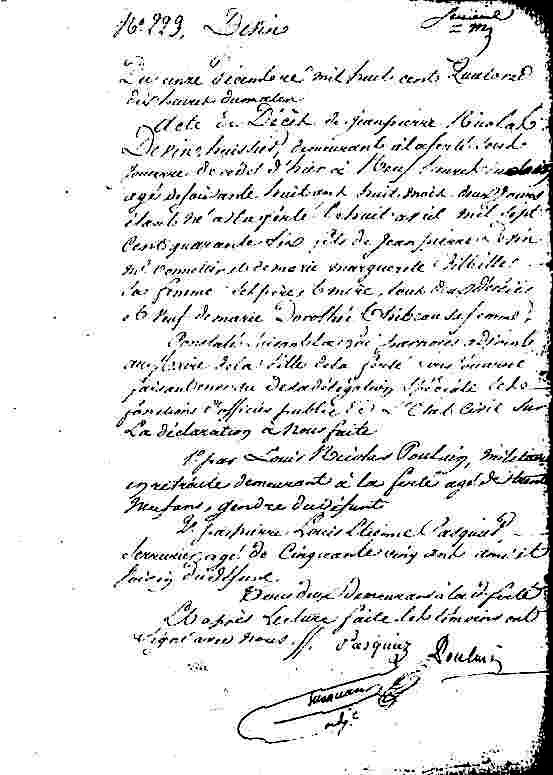 No. 223, Devin
Du onze décembre mil huit cent Quatorze
dix heures du matin
Acte de Décès de jean pierre Nicolas
Devin huissier, demeurant à la ferté sous
jouarre décédé d'hier à Neuf heures
agé de soixante huit ans huit mois deux jours
étant né à la ferté le huit avril mil sept
Cent quarante Six fils de Jean pierre Devin
Md. et de marie marguerite
Sa femme Ses père et mère, tous deux décédés
et Veuf de marie Dorothée Sa femme,
Constaté Suivant la Loi par nous adjoint
au Maire de la Ville de la ferté sous jouarre
faisant en vertu de sa délégation Spéciale les
fonctions d'officier public de L'Etat Civil Sur
La déclaration à Nous faite
1° par Louis Nicolas Poulain, militaire
en retraite demeurant à la ferté agé de trente
Neuf ans, gendre du défunt
2° par pierre Louis Etienne Pasquier
Serrurier, agé de Cinquante cinq ans ami et
Voisin du défunt.
Tous deux demeurans à la d. ferté
Et après Lecture faite les témoins ont
Signé avec nous. //. Pasquier
Poulain
adj.t